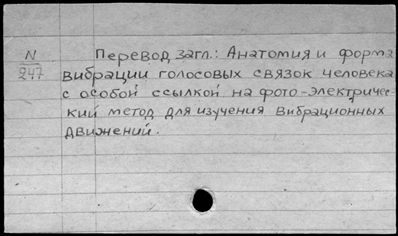 N
247
Перевод загл.: Анатомия и форма
вибрации голосовых связок человека
с особой ссылкой на фото-электричес-
кий метод для изучения вибрационных
движений.